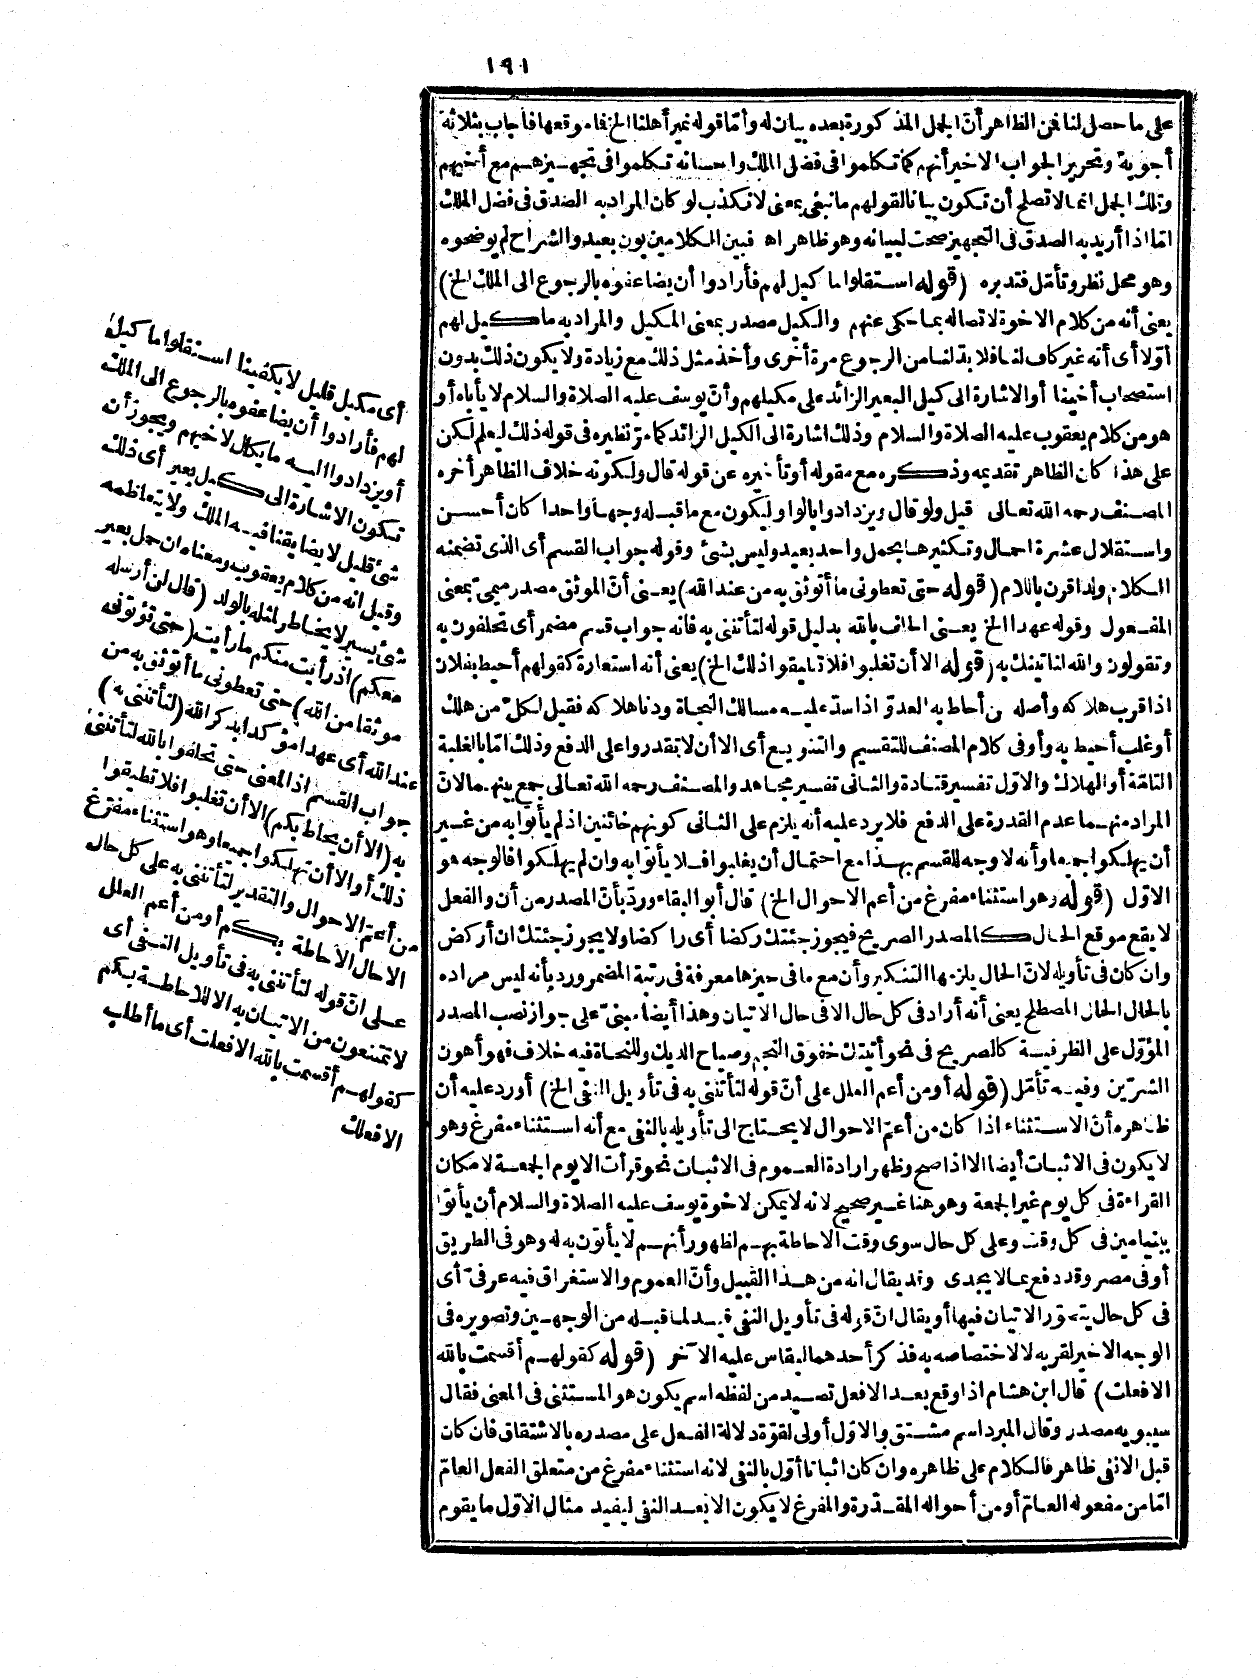 ١٩١
على ما حصل لنا فمن الظاهر أنّ الجمل المذكورة بعده بيان له وأمّا قوله نمير أهلنا الخ فما موقعها فأجاب بثلاثة
أجوبة وتحرير الجواب الاخير أنهم كما تكلموا فى فضل الملك واحسانه تكلموا فى تجهيزهم مع أخيهم
وتلك الجمل انما لا تصلح أن تكون بيانا لقولهم ما نبغى بمعنى لا نكذب لو كان المراد به الصدق فى فضل الملك
امّا اذا أريد به الصدق فى التجهيز صحت لبيانه وهو ظاهر اه فبين الكلامين بون بعيد والشراح لم يوضحوه
وهو محل نظر وتأمّل فتدبره (قوله استقلوا ما كيل لهم فأرادوا أن يضاعفوه بالرجوع الى الملك الخ)
يعنى أنه من كلام الاخوة لاتصاله بما حكى عنهم والكيل مصدر بمعنى المكيل والمراد به ما كيل لهم
أوّلا أى أنه غير كاف لنا فلا بدّ لنا من الرجوع مرة أخرى وأخذ مثل ذلك مع زيادة ولا يكون ذلك بدون
استصحاب أخينا أو الاشارة الى كيل البعير الزائد على مكيلهم وأنّ يوسف عليه الصلاة والسلام لا يأباه أو
هو من كلام يعقوب عليه الصلاة والسلام وذلك اشارة الى الكيل الزائد كما مرّ نظيره فى قوله ذلك ليعلم لكن
على هذا كان الظاهر تقديمه وذكره مع مقوله أو تأخيره عن قوله قال ولكونه خلاف الظاهر أخره
المصنف رحمه الله تعالى قيل ولو قال ويزدادوا بالواو ليكون مع ما قبله وجها واحدا كان أحسن
واستقلال عشرة احمال وتكثيرها بحمل واحد بعيد وليس بشئ وقوله جواب القسم أى الذى تضمنه
الكلام ولذا قرن باللام (قوله حتى تعطونى ما أتوثق به من عند الله) يعنى أنّ الموثق مصدر ميمى بمعنى
المفعول وقوله عهدا الخ يعنى الحلف بالله بدليل قوله لتأتننى به فانه جواب قسم مضمر أى تحلفون به
وتقولون والله لنأتينك به (قوله الا أن تغلبوا فلا تطيقوا ذلك الخ) يعنى أنه استعارة كقولهم أحيط بفلان
اذا قرب هلاكه وأصله من أحاط به العدوّ اذا سدّ عليه مسالك النجاة ودنا هلاكه فقيل لكلّ من هلك
أو غلب أحيط به وأو فى كلام المصنف للتقسيم والتنويع أى الا أن لا تقدروا على الدفع وذلك امّا بالغلبة
التامّة أو الهلاك والاوّل تفسير قتادة والثانى تفسير مجاهد والمصنف رحمه الله تعالى جمع بينهما لانّ
المراد منهما عدم القدرة على الدفع فلا يرد عليه أنه يلزم على الثانى كونهم خائنين اذ لم يأتوا به من غير
أن يهلكوا جميعا وأنه لا وجه للقسم بهذا مع احتمال أن يغلبوا فلا يأتوا به وان لم يهلكوا فالوجه هو
الاوّل (قوله وهو استثناء مفرغ من أعم الاحوال الخ) قال أبو البقاء وردّ بأنّ المصدر من أن والفعل
لا يقع موقع الحال كالمصدر الصريح فيجوز جئتك ركضا أى راكضا ولا يجوز جئتك ان أركض
وان كان فى تأويله لانّ الحال يلزمها التنكير وأن مع ما فى حيزها معرفة فى رتبة المضمر ورد بأنه ليس مراده
بالحال الحال المصطلح يعنى أنه أراد فى كل حال الا فى حال الاتيان وهذا أيضا مبنىّ على جواز نصب المصدر
المؤوّل على الظرفية كالصريح فى نحو أتيتك خفوق النجم وصياح الديك وللنحاة فيه خلاف فهو أهون
الشرّين وفيه تأمّل (قوله أو من أعم العلل على أنّ قوله لتأتننى به فى تأويل النفى الخ) أورد عليه أن
ظاهره أنّ الاستثناء اذا كان من أعمّ الاحوال لا يحتاج الى تأويله بالنفى مع أنه استثناء مفرغ وهو
لا يكون فى الاثبات أيضا الا اذا صح وظهر ارادة العموم فى الاثبات نحو قرأت الا يوم الجمعة لامكان
القراءة فى كل يوم غير الجمعة وهو هنا غير صحيح لانه لا يمكن لاخوة يوسف عليه الصلاة والسلام أن يأتوا
ببنيامين فى كل وقت وعلى كل حال سوى وقت الاحاطة بهم لظهور أنهم لا يأتون به له وهو فى الطريق
أو فى مصر وقد دفع بما لا يجدى وقد يقال انه من هذا القبيل وأنّ العموم والاستغراق فيه عرفىّ أى
فى كل حال يتصوّر الاتيان فيها أو يقال انّ قوله فى تأويل النفى قيد لما قبله من الوجهين وتصويره فى
الوجه الاخير لقربه لا لاختصاصه به فذكر أحدهما ليقاس عليه الآخر (قوله كقولهم أقسمت بالله
الا فعلت) قال ابن هشام اذا وقع بعد الا فعل تصيد من لفظه اسم يكون هو المستثنى فى المعنى فقال
سيبويه مصدر وقال المبرد اسم مشتق والاوّل أولى لقوّة دلالة الفعل على مصدره بالاشتقاق فان كان
قبل الا نفى ظاهر فالكلام على ظاهره وان كان اثباتا أوّل بالنفى لانه استثناء مفرغ من متعلق الفعل العامّ
امّا من مفعوله العامّ أو من أحواله المقدّرة والمفرغ لا يكون الا بعد النفى ليفيد مثال الاوّل ما يقوم
أى مكيل قليل لا يكفينا استقلوا ما كيل
لهم فأرادوا أن يضاعفوه بالرجوع الى الملك
أو يزدادوا اليه ما يكال لاخيهم ويجوز أن
تكون الاشارة الى كيل بعير أى ذلك
شئ قليل لا يضايقنا فيه الملك ولا يتعاظمه
وقيل انه من كلام يعقوب ومعناه ان حمل بعير
شئ يسير لا يخاطر لمثله بالولد (قال لن أرسله
معكم) اذ رأيت منكم ما رأيت (حتى تؤتون
موثقا من الله) حتى تعطونى ما أتوثق به من
عند الله أى عهدا مؤكدا بذكر الله (لتأتننى به)
جواب القسم اذ المعنى حتى تحلفوا بالله لتأتننى
به (الا أن يحاط بكم) الا أن تغلبوا فلا تطيقوا
ذلك أو الا أن تهلكوا جميعا وهو استثناء مفرغ
من أعمّ الاحوال والتقدير لتأتننى به على كل حال
الا حال الاحاطة بكم أو من أعم العلل
على انّ قوله لتأتننى به فى تأويل النفى أى
لا تمتنعون من الاتيان به الا للاحاطة بكم
كقولهم أقسمت بالله الا فعلت أى ما أطلب
الا فعلك